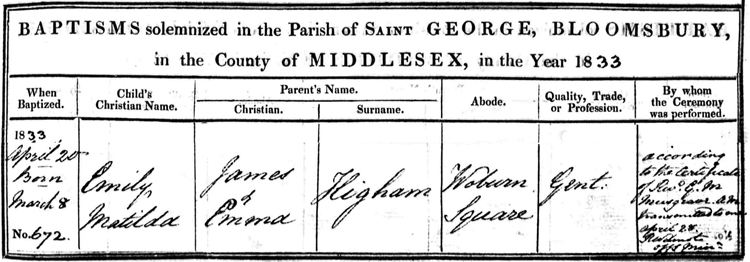 BAPTISMS solemnized in the Parish of SAINT GEORGE, BLOOMSBURY,
in the County of MIDDLESEX, in the Year 1833
When Baptized.
Child's Christian Name.
Parent's Name.
Christian.
Surname.
Abode.
Quality, Trade, or Profession.
By whom the Ceremony was performed.
1833.
April 20
Born
March 8
No. 672.
Emily
Matilda
James
&
Emma
Higham
Woburn
Square
Gent.
according
to the Certificate
of Revd. G. M
Musgrave A.M
transmitted to me
april 28